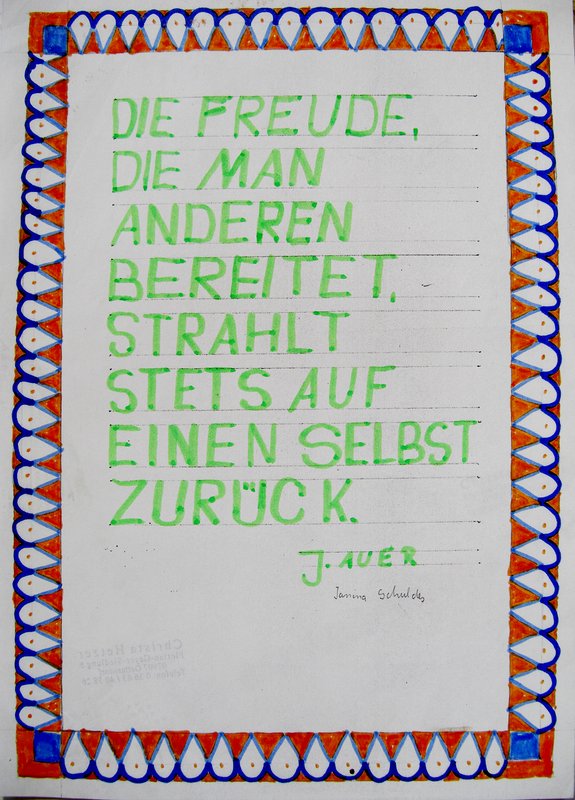 DIE FREUDE,
DIE MAN
ANDEREN
BEREITET,
STRAHLT
STETS AUF
EINEN SELBST
ZURÜCK.
J. AUER
Janina Schuldes
Christa Hetzer